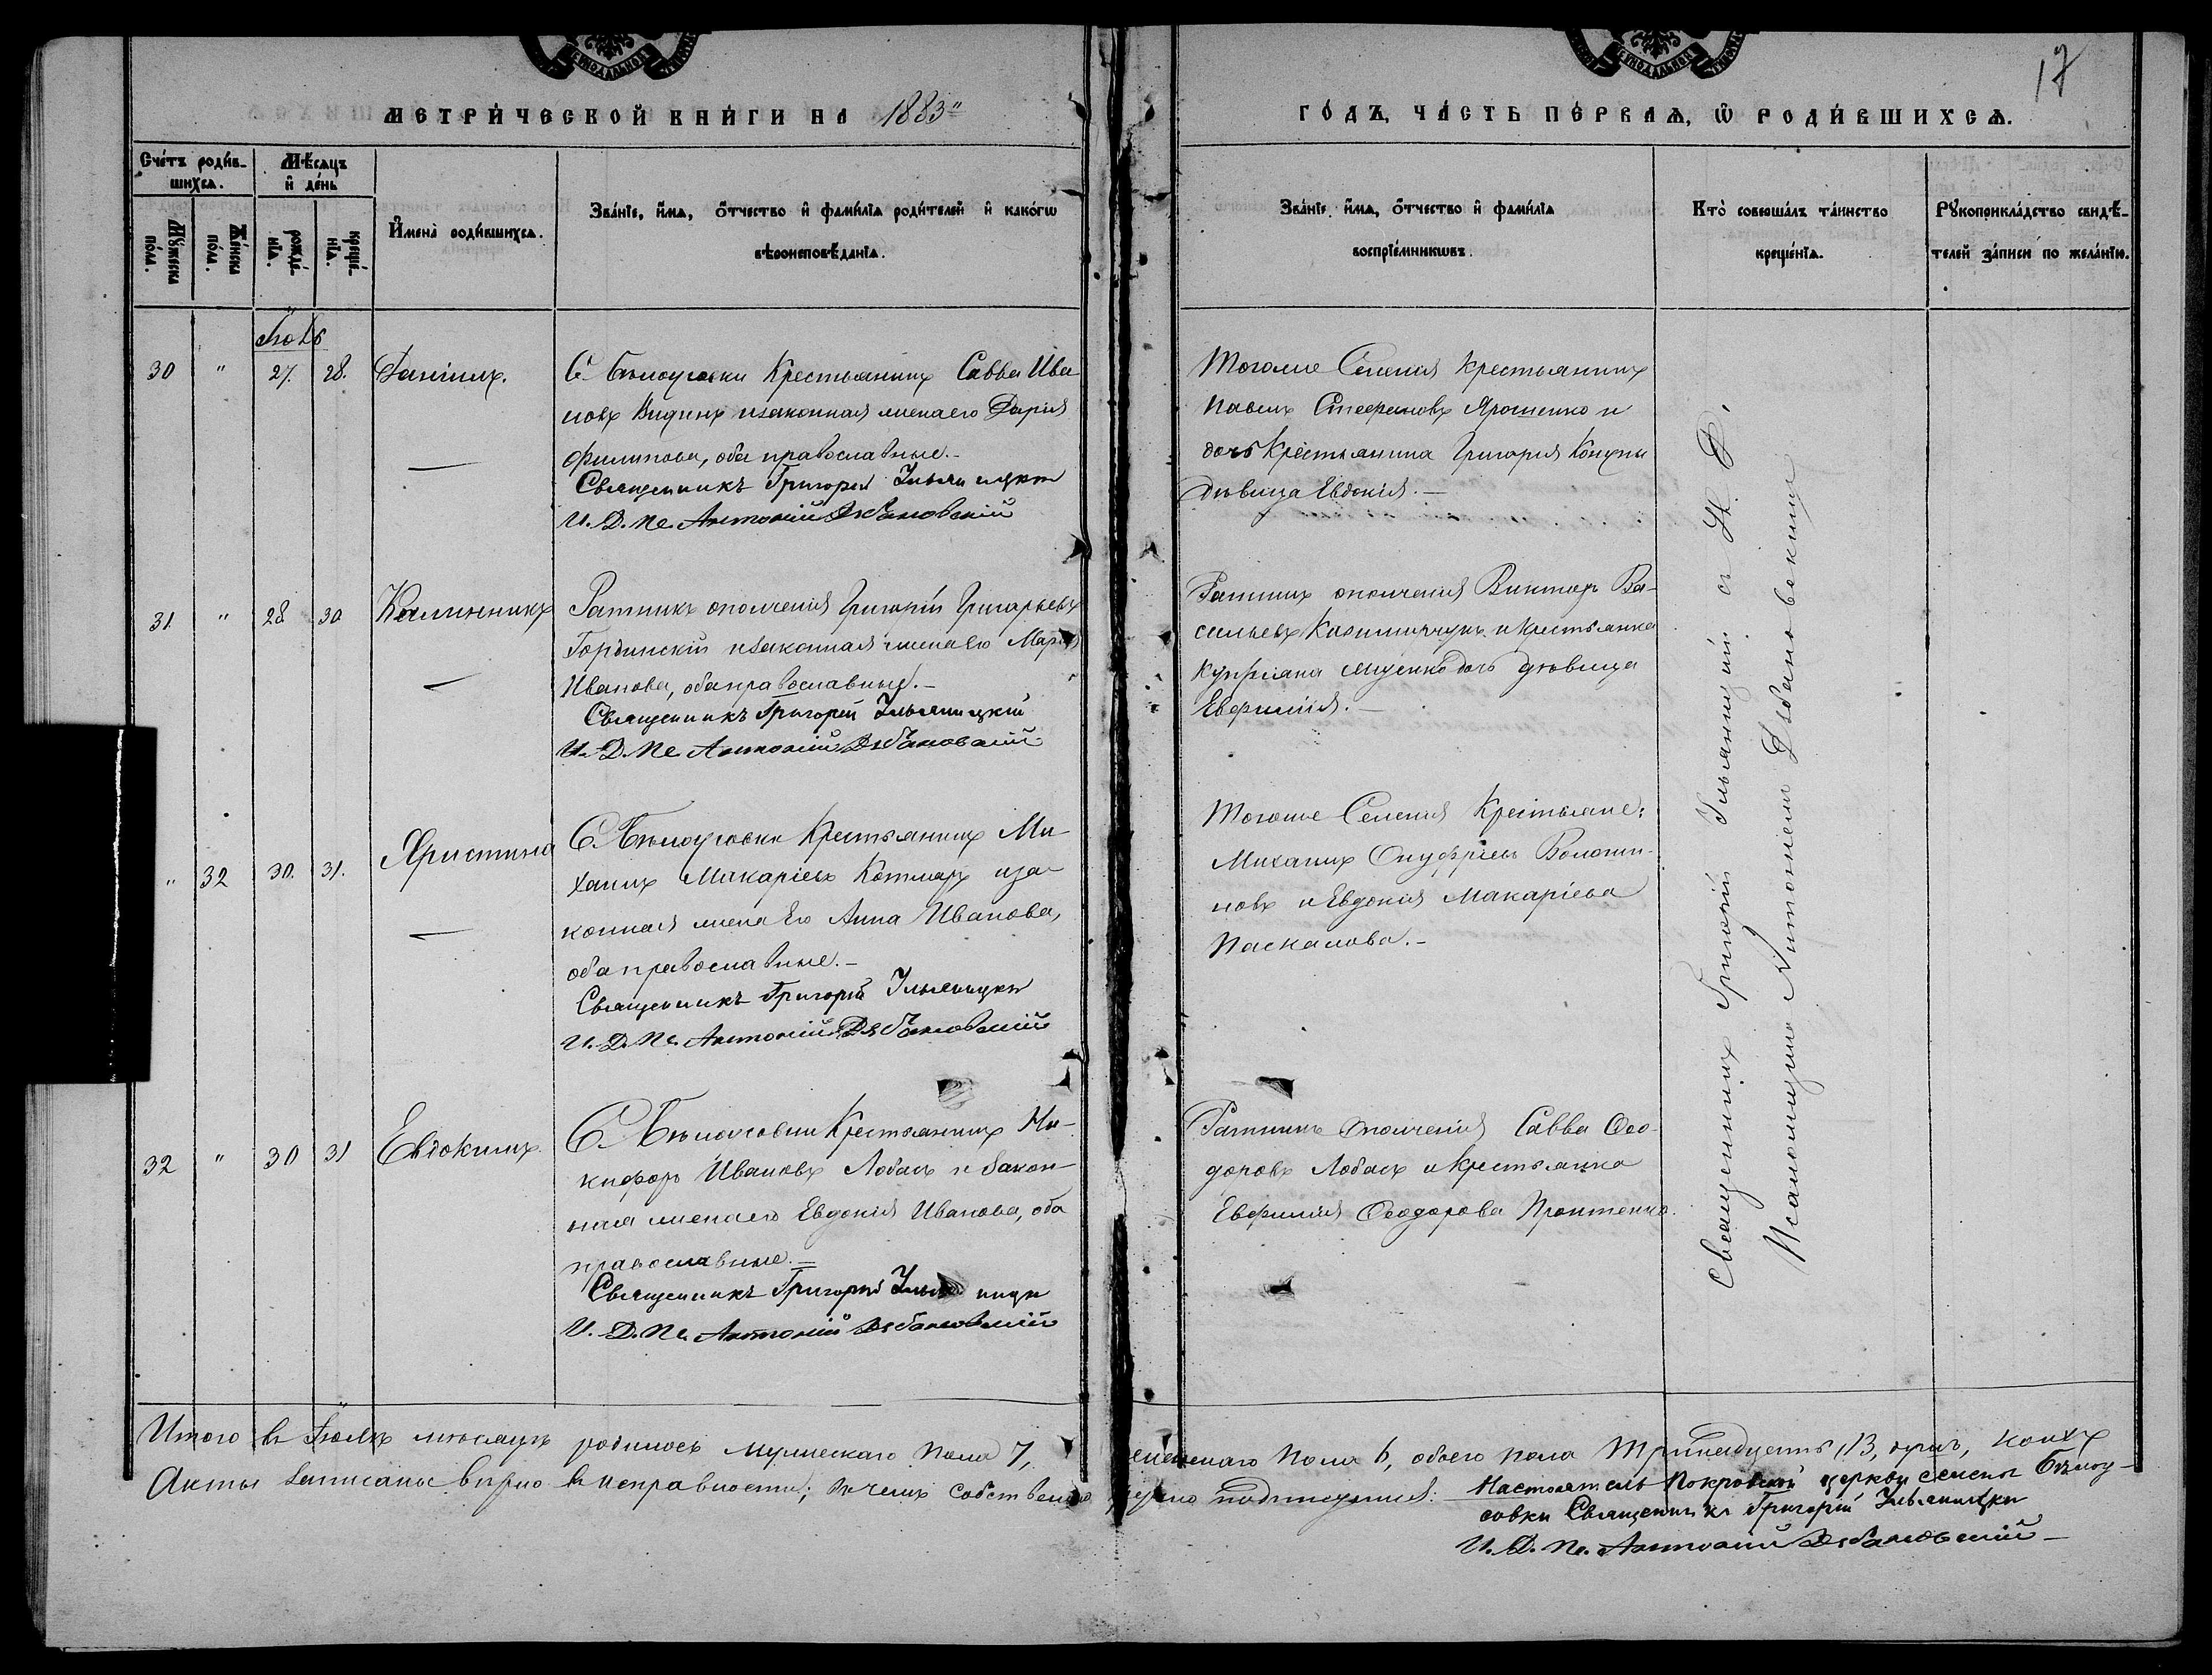 17
МЕТРИ́ЧЕСКОЙ КНИ́ГИ НА 1883
ГО́ДЪ, ЧА́СТЬ ПЕ́РВАѦ, Ѡ҆ РОДИ́ВШИХСѦ.
Сче́тъ роди́в-
шихсѧ.
Мѣ́сяцъ
и҆ де́нь
Мꙋ́жеска
по́ла.
Же́нска
по́ла.
рожде́-
нїѧ.
креще́-
нїѧ.
И҆мена̀ роди́вшихсѧ.
Зва́нїе, и҆́мѧ, ѻ҆́тчество и҆ фами́лїѧ роди́телей и҆ како́гѡ
вѣроисповѣ́данїѧ.
Зва́нїе, и҆́мѧ, ѻ҆́тчество и҆ фами́лїѧ
воспрїе́мникѡвъ.
Кто̀ соверша́лъ та́инство
креще́нїѧ.
Рꙋкоприкла́дство свидѣ́-
телей за́писи по жела́нїю.
Іюль
30 " 27. 28. Даніилъ.
С. Бѣлоусовки Крестьянинъ Савва Ива-
новъ Видинъ и законная жена его Дарія
Филипова, оба православные.-
Священникъ Григорій Ильяницкій
И. Д. Пс. Антоній Дзбановскій
Тогоже Селенія Крестьянинъ
Павелъ Стефановъ Ярошенко и
дочь Крестьянина Григорія
дѣвица Евдокія.-
31. " 28 30 Каллинникъ
Ратникъ ополченія Григорій Григорьевъ
Гординскій и законная жена его Марія
Иванова, оба православные.-
Священникъ Григорій Ильяницкій
И. Д. Пс. Антоній Дзбановскій
Ратникъ ополченія Викторъ Ва-
сильевъ Казимирчукъ и крестьянина
Купріана Мищенко дочь дѣвица
Евфимія.-
" 32 30. 31. Христина
С. Бѣлоусовки Крестьянинъ Ми-
хаилъ Макаріевъ Котляръ и за-
конная жена Его Анна Иванова,
оба православные.-
Священникъ Григорій Ильяницкій
И. Д. Пс. Антоній Дзбановскій
Тогоже Селенія Крестьяне:
Михаилъ Онуфріевъ Волоши-
новъ и Евдокія Макаріева
Паскалова.-
32 " 30 31 Евдокимъ.
С. Бѣлоусовки Крестьянинъ Ни-
кифоръ Ивановъ Лобасъ и закон-
ная жена его Евдокія Иванова, оба
православные.-
Священникъ Григорій Ильяницкій
И. Д. Пс. Антоній Дзбановскій
Ратникъ Ополченія Савва Ѳео-
доровъ Лобасъ и крестьянка
Евфимія Ѳеодорова
Священникъ Григорій Ильяницкій съ И. Д.
Псаломщика Антоніемъ Дзбановскимъ
Итого въ Іюлѣ мѣсяцѣ родилось мужескаго пола 7, женскаго пола 6, обоего пола тринадцать /13/ душъ, коихъ
Акты записаны вѣрно въ исправности; въ чемъ собственноручно подписуемся: Настоятель Покровской церкви селенія Бѣлоу-
совки Священникъ Григорій Ильяницкій
И. Д. Пс. Антоній Дзбановскій